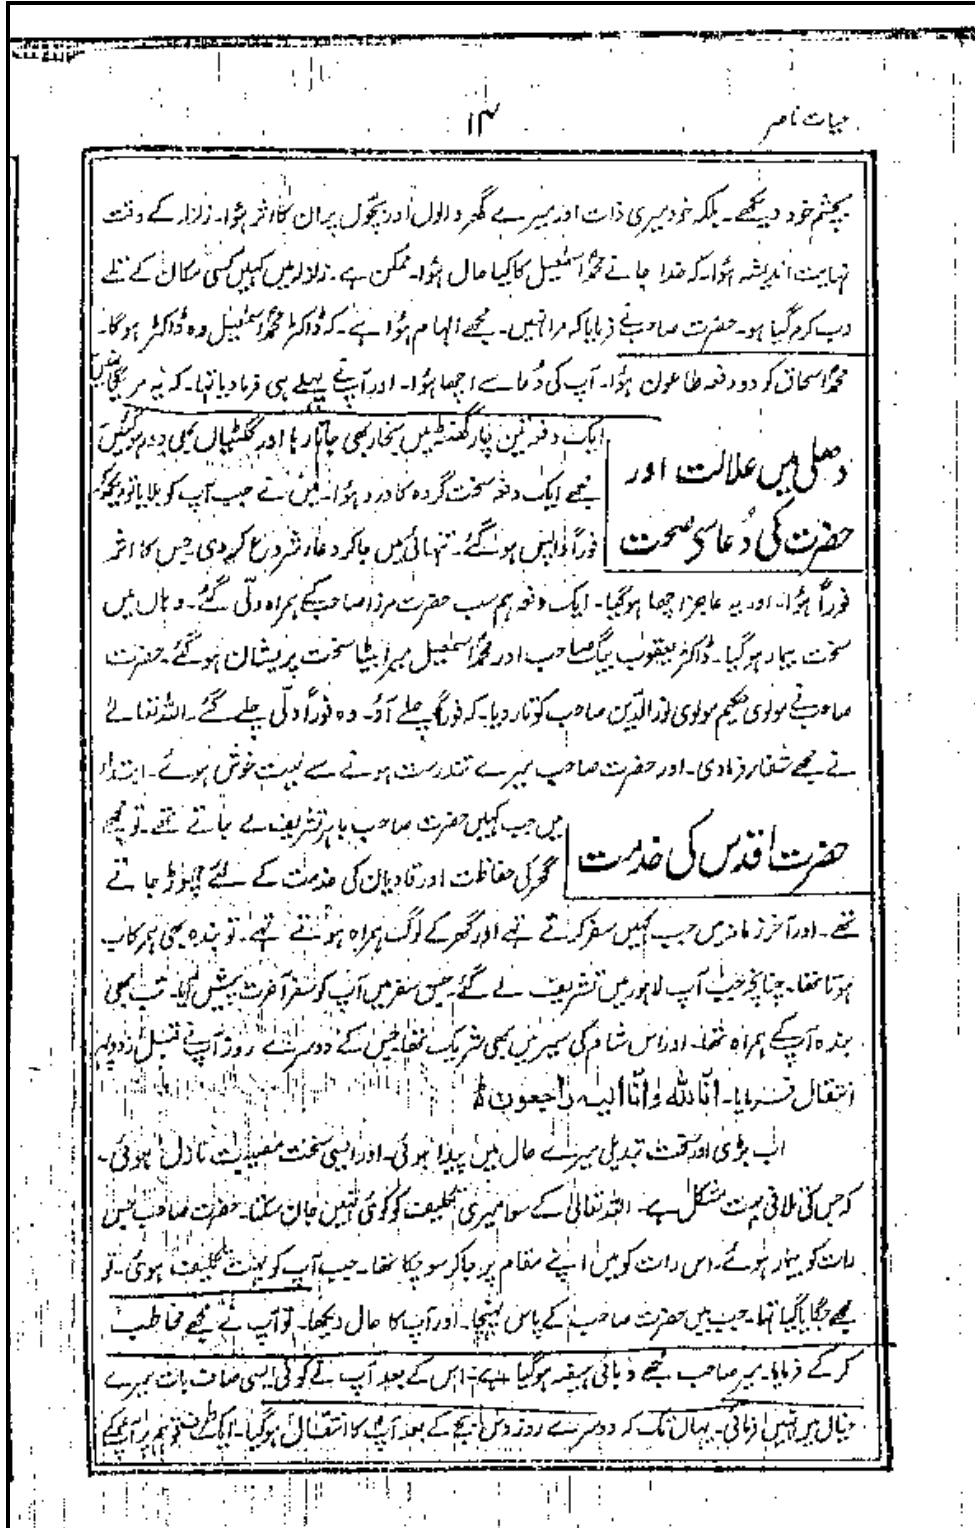 حیات ناصر
۱۴
بچشم خود دیکھے۔ بلکہ خود میری ذات اور میرے گھر والوں اور بچوں پر ان کا اثر ہؤا۔ زلزلہ کے وقت
نہایت اندیشہ ہؤا۔ کہ خدا جانے محمدؐ اسمٰعیل کا کیا حال ہؤا۔ ممکن ہے۔ زلزلہ میں کہیں کسی مکان کے تلے
دب کر مر گیا ہو۔ حضرت صاحب نے فرمایا کہ مرا نہیں۔ مجھے الہام ہؤا ہے۔ کہ ڈاکٹر محمدؐ اسمٰعیل وہ ڈاکٹر ہوگا۔
محمدؐ اسحاق کو دو دفعہ طاعون ہؤا۔ آپ کی دُعا سے اچھا ہؤا۔ اور آپنے پہلے ہی فرما دیا تہا۔ کہ یہ مریگا نہیں
دھلی میں علالت اور
حضرت کی دُعا سی صحت
ایک دفعہ تین چار گھنٹہ میں بخار بھی جاتا رہا اور گلٹیاں بھی دور ہوگئیں
مجھے ایک دفعہ سخت گردہ کا درد ہؤا۔ میں نے جب آپ کو بلایا تو دیکھکر
فوراً واپس ہو گئے۔ تنہائی میں جا کر دعا شروع کر دی جس کا اثر
فوراً ہؤا۔ اور یہ عاجز اچھا ہوگیا۔ ایک دفعہ ہم سب حضرت مرزا صاحب کے ہمراہ دلّی گئے۔ وہاں میں
سخت بیمار ہوگیا۔ ڈاکٹر یعقوب بیگ صاحب اور محمدؐ اسمٰعیل میرا بیٹا سخت پریشان ہو گئے۔ حضرت
صاحب نے مولوی حکیم مولوی نور الدّین صاحب کو تار دیا۔ کہ فوراً چلے آؤ۔ وہ فوراً دلّی چلے گئے۔ اللہ تعالےٰ
نے مجھے شفا فرمادی۔ اور حضرت صاحب میرے تندرست ہونے سے بہت خوش ہوئے۔ ابتدا
حضرت اقدس کی خدمت
میں جب کہیں حضرت صاحب باہر تشریف لے جاتے تھے۔ تو مجھے
گھر کی حفاظت اور قادیان کی خدمت کے لئے چھوڑ جاتے
تھے۔ اور آخر زمانہ میں جب کہیں سفر کرتے تھے اور گھر کے لوگ ہمراہ ہوتے تھے۔ تو بندہ بھی ہمرکاب
ہوتا تھا۔ چنانچہ جب آپ لاہور میں تشریف لے گئے۔ جس سفر میں آپ کو سفر آخرت پیش آیا۔ تب بھی
بندہ آپ کے ہمراہ تھا۔ اور اس شام کی سیر میں بھی شریک تھا جس کے دوسرے روز آپ نے قبل از دوپہر
انتقال فرمایا۔ انّا للہ وانّا الیہ راجعون۔
اب بڑی اور سخت تبدیلی میرے حال میں پیدا ہوئی۔ اور ایسی سخت مصیبت نازل ہوئی۔
کہ جس کی تلافی بہت مشکل ہے۔ اللہ تعالیٰ کے سوا میری تکلیف کو کوئی نہیں جان سکتا۔ حضرت صاحب جس
رات کو بیمار ہوئے۔ اس رات کو میں اپنے مقام پر جا کر سو چکا تھا۔ جب آپ کو بہت تکلیف ہوئی۔ تو
مجھے جگایا گیا تہا۔ جب میں حضرت صاحب کے پاس پہنچا۔ اور آپ کا حال دیکھا۔ تو آپ نے مجھے مخاطب
کر کے فرمایا۔ میر صاحب مجھے وبائی ہیضہ ہوگیا ہے۔ اس کے بعد آپ نے کوئی ایسی صاف بات میرے
خیال میں نہیں فرمائی۔ یہاں تک کہ دوسرے روز دس بجے کے بعد آپ کا انتقال ہوگیا۔